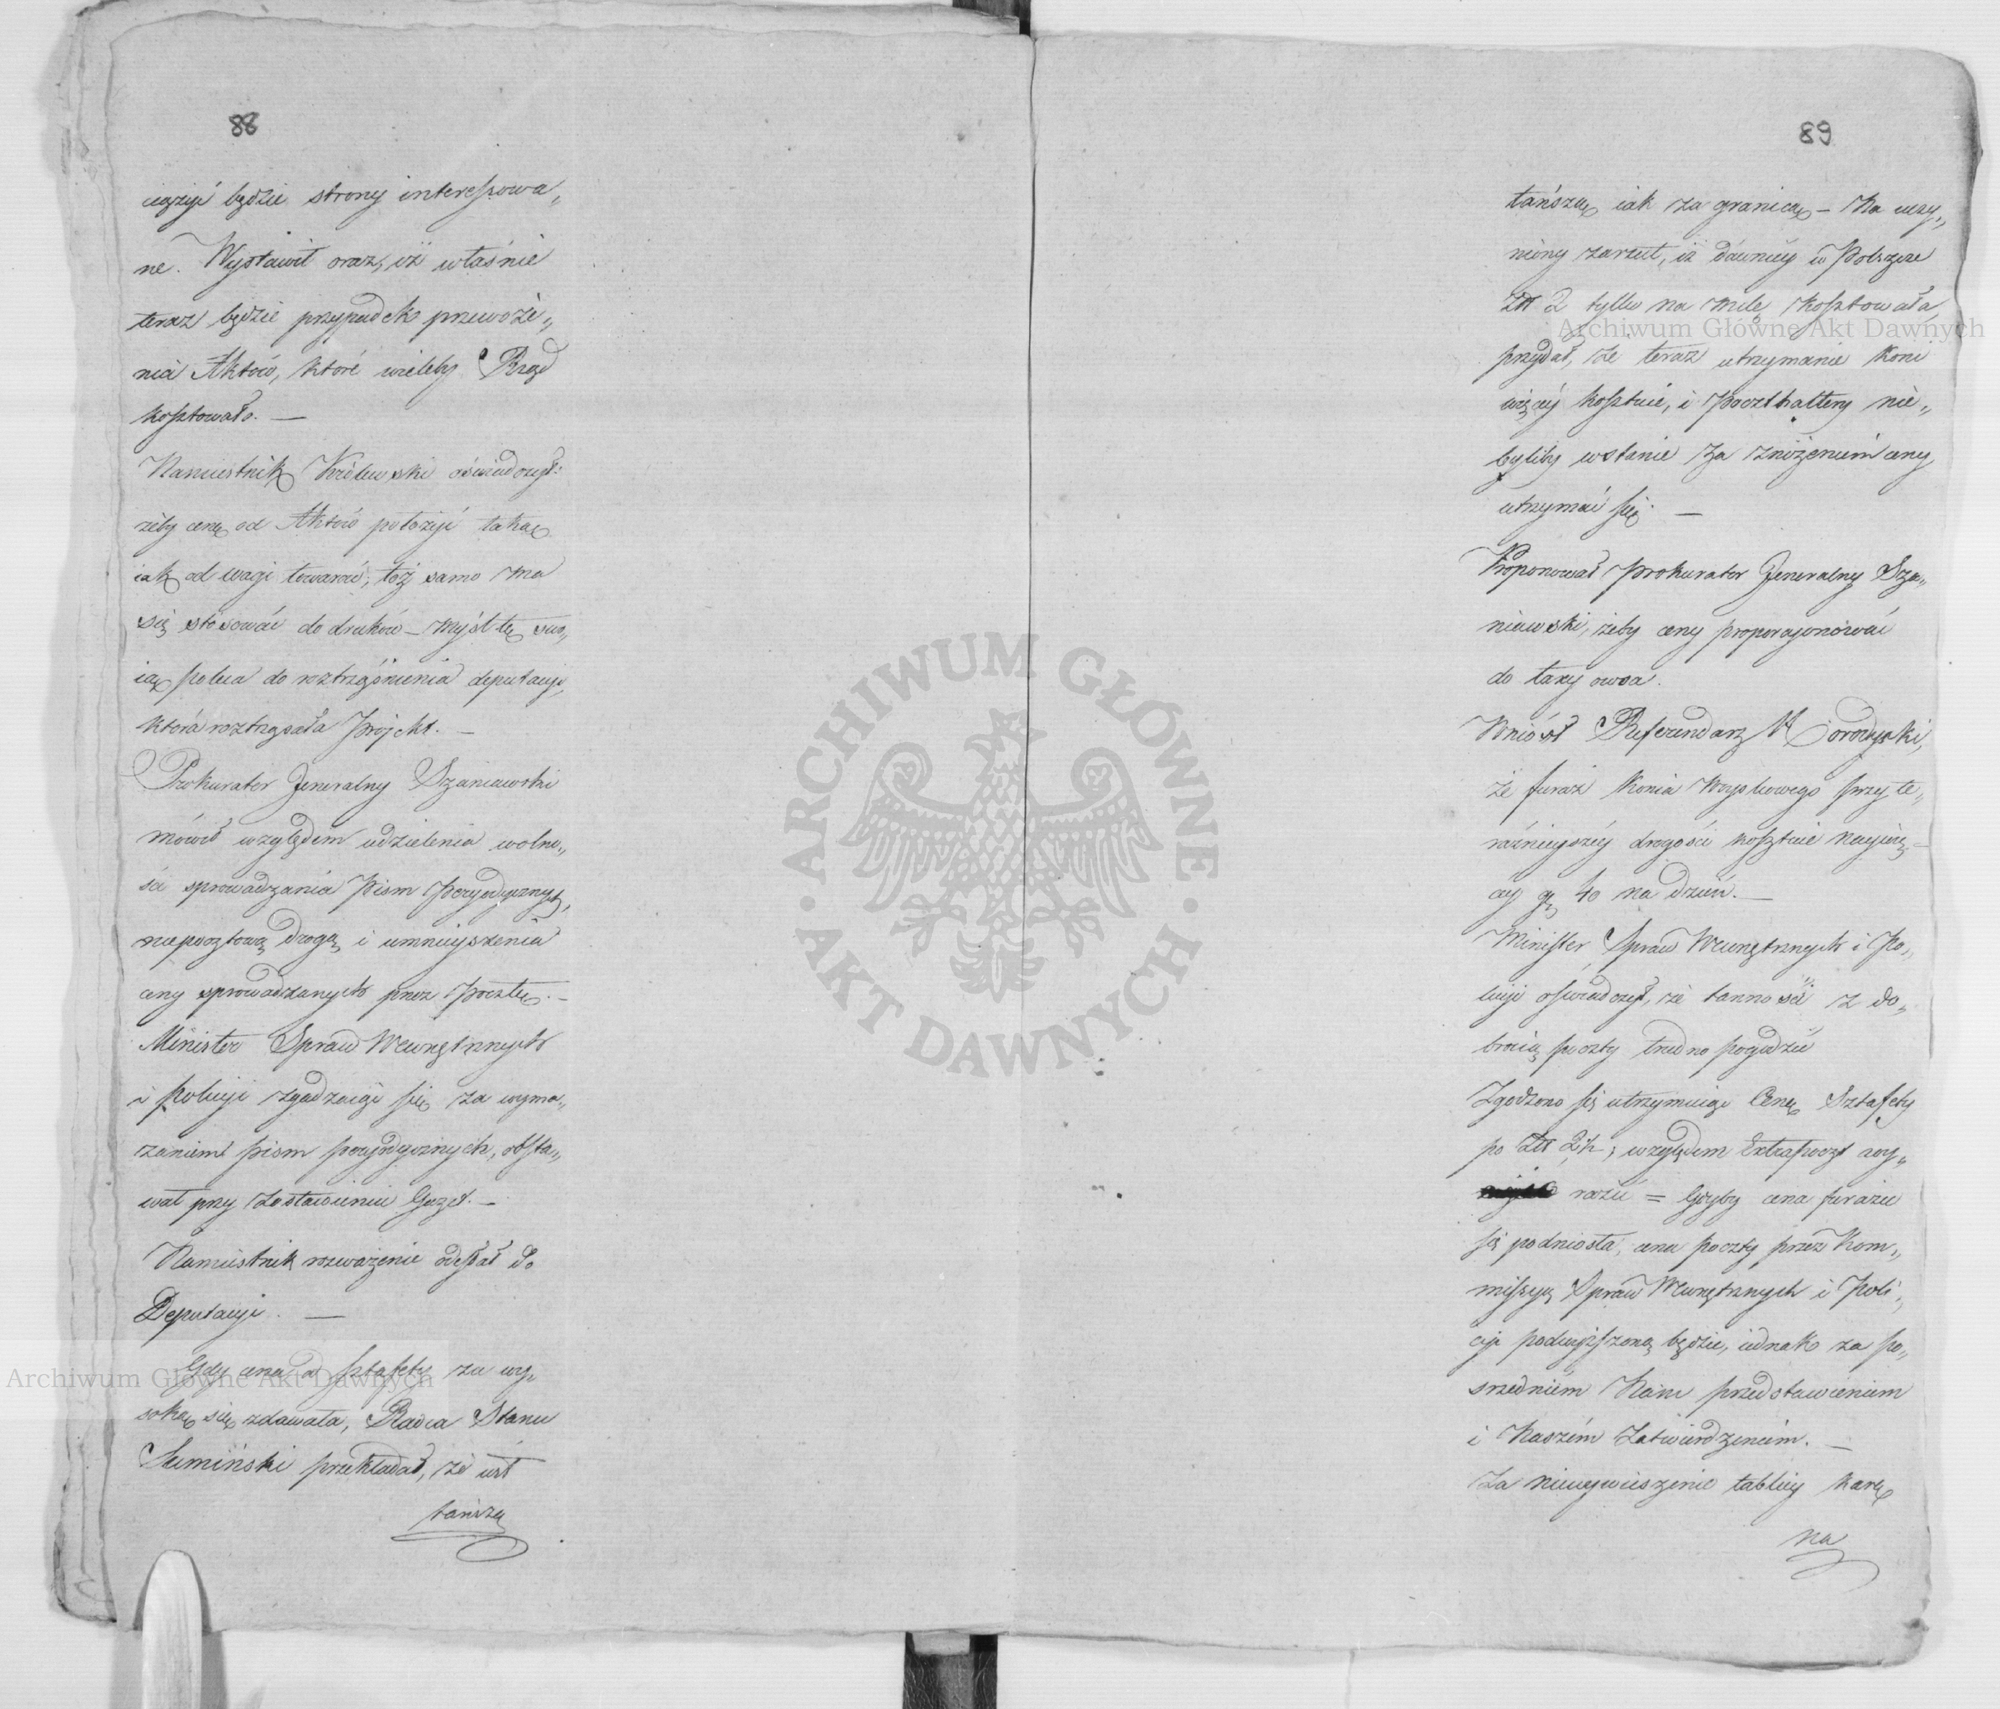 88
ciężyć będzie strony interessowa„
ne. Wystawił oraz, iż właśnie
teraz będzie przypadek przewoże„
nia Aktów, które wieleby Rząd
kosztowało. —
Namiestnik Królewski oświadczył:
żeby cenę od Aktów położyć taką
iak od wagi towarów, toż samo ma
się stósować do druków — myśl tę swo„
ią poleca do roztrząśnienia deputacyi,
która roztrząsała Projekt. —
Prokurator Jeneralny Szaniawski
mówił względem udzielenia wolno„
ści sprowadzania Pism Peryodycznych,
niepocztową drogą i umnieyszenia
ceny sprowadzanych przez Pocztę. —
Minister Spraw Wewnętrznych
i Policyi zgadzaiąc się za wyma„
zaniem pism peryodycznych, obsta„
wał przy zostawieniu Gazet. —
Namiestnik rozważenie odesłał do
Deputacyi. —
Gdy cena od sztafety za wy„
soką się zdawała, Radca Stanu
Sumiński przekładał, że iest
tańszą
89
tańszą iak za granicą — Na uczy„
niony zarzut, iż dawniey w Polszcze
Zł 2 tylko na milę kosztowała,
przydał, że teraz utrzymanie koni
więcéy kosztuie, i Poczthaltery nie„
byliby wstanie za zniżeniem ceny
utrzymać się. —
Proponował Prokurator Jeneralny Sza„
niawski, żeby ceny proporcyonować
do taxy owsa.
Wniósł Referendarz Horodyski,
że furaż konia woyskowego przy te„
raźnieyszéy drogości kosztuie naywię„
céy gr 40 na dzień. —
Minister Spraw Wewnętrznych i Po„
licyi oświadczył, że tanność z do„
brocią poczty trudno pogodzić
Zgodzono się utrzymuiąc Cenę Sztafety
po Zł 2½, względem Extrapoczt wy„
razić = Gdyby cena furażu
się podniosła, cena poczty przez Kom„
missyą Spraw Wewnętrznych i Poli„
cyi podwyższoną będzie, iednak za po„
srzedniém Nam przedstawieniem
i Naszém Zatwierdzeniem. —
Za niewywieszenie tablicy karę
na
Archiwum Główne Akt Dawnych
Archiwum Główne Akt Dawnych
ARCHIWUM GŁÓWNE · AKT DAWNYCH ·